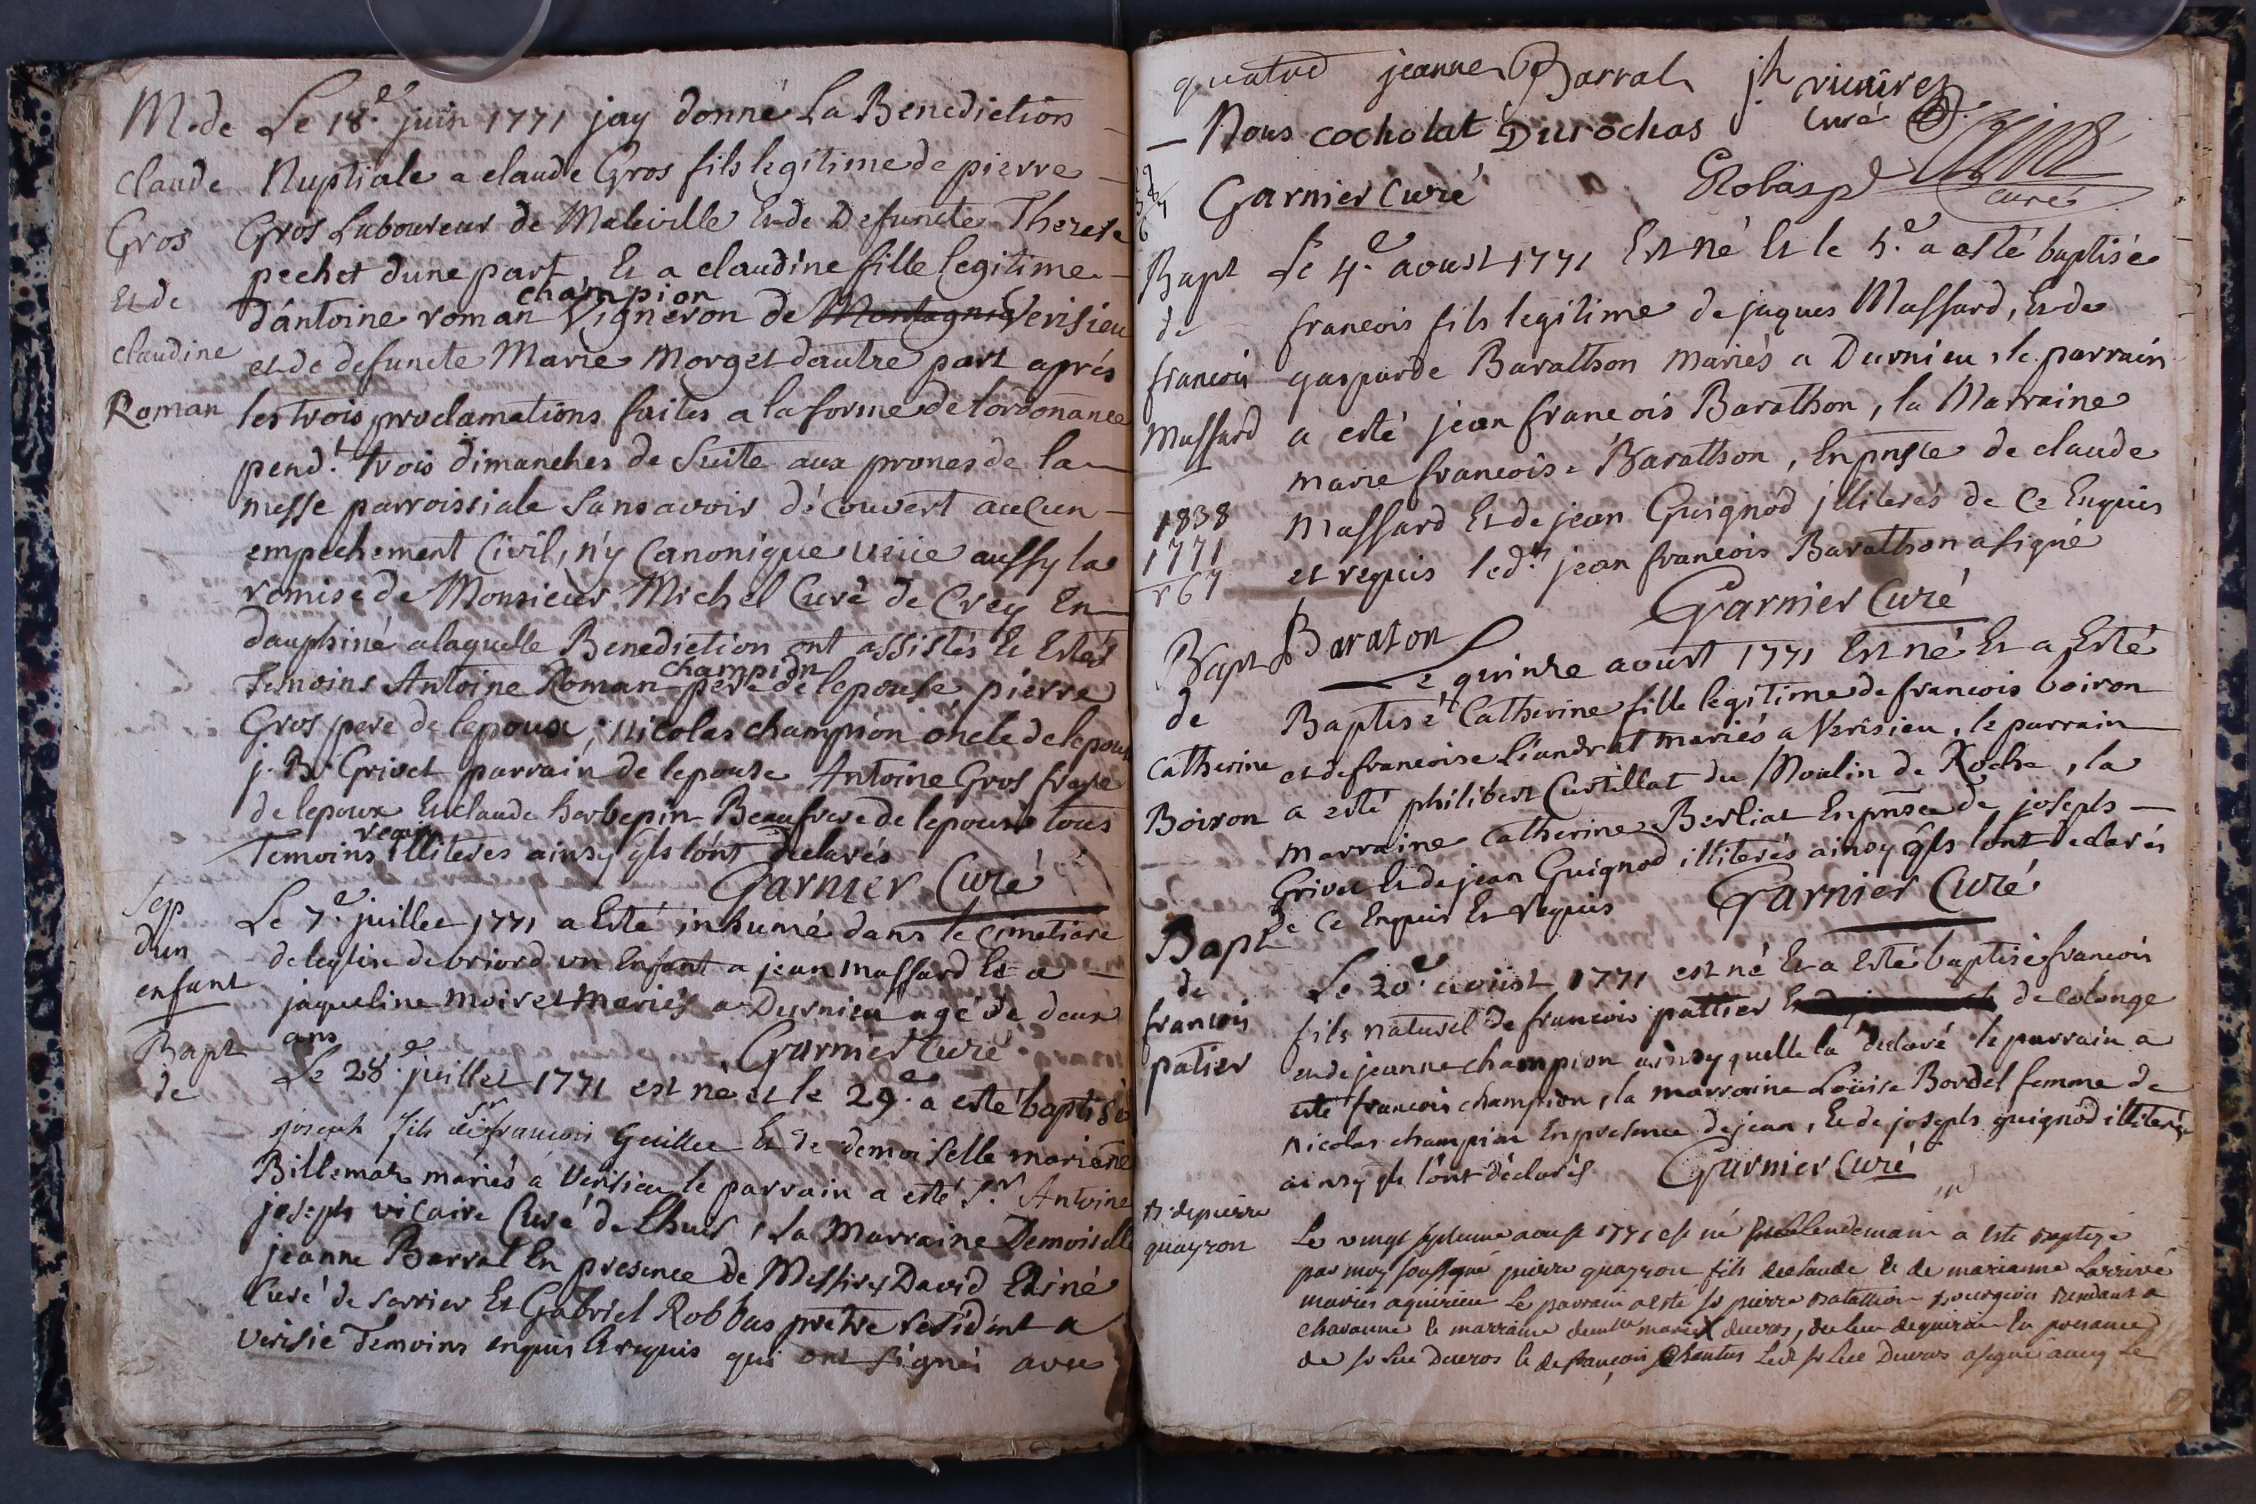 M. de
claude
Gros
Et de
claudine
Roman
Le 18.e juin 1771 jay donné La Benediction
Nuptiale a claude Gros fils legitime de pierre
Gros Laboureur de Maleville Et de Defuncte Therese
pechet dune part, Et a claudine fille legitime
champion
d'antoine roman Vigneron de Montagnieu Verisieu
et de defuncte Marie Morget dautre part aprés
les trois proclamations faites a la forme de lordonance
pend.t trois dimanches de Suite aux prones de la
messe parroissiale Sans avoir découvert aucun
empechement Civil, n'y Canonique veüe aussy la
remise de Monsieur Michel Curé de Crey En
dauphiné a laquelle Benediction ont assistés Et Estés
champion
Temoins Antoine Roman pere de lepouse, pierre
Gros pere de lepoux, Nicolas champion oncle de lepouse
j. B. Grivet parrain de lepouse Antoine Gros frere
de lepoux Et claude herbepin Beaufrere de lepouse tous
Temoins requis illiteres ainsy qls lónt declarés
Garnier Curé
Sep
d'un
enfant
Le 7.e juillet 1771 a Esté inhumé dans le cimetiere
de leglise de briord un Enfant a jean massard Et a
jaqueline moiret mariés a Durnieu agé de deux
ans
Garnier Curé
Bapt
de
Le 28.e juillet 1771 est né et le 29.e a esté baptisé
joseph fils de sr françois Guillet Et de demoiselle mariane
Billemaz mariés a Verisieu le parrain a esté S.r Antoine
joseph vicaire Curé de Lhuis, la Marraine Demoiselle
jeanne Barral En presence de Messires David Ediné
Curé de serrier Et Gabriel Robbas prètre residént a
Verisié Temoins enquis Et requis qui ont signés avec
quatre jeanne Barral jh vicaire
curé
Nous cocholat Durochas
Garnier Curé
Robas p
curé
Bapt
de
francois
Massard
1838
1771
67
Le 4.e aoust 1771 Est né Et le 5.e a esté baptisé
francois fils legitime de jaques Massard, Et de
gasparde Barathon mariés a Durnieu, le parrain
a esté jean francois Barathon, la Marraine
marie francoise Barathon, En pnste de claude
Massard Et de jean Guignod jlliterés de Ce Enquis
et requis led.t jean francois Barathon a signé
Garnier Curé
Baraton
Bapt
de
Catherine
Boiron
Le quinze aoust 1771 Est né Et a Esté
Baptisé Catherine fille legitime de francois boiron
et de francoise Liandrat mariés a Verisieu, le parrain
a esté philibert Curtillat du Moulin de Roche, la
marraine Catherine Berliat En pnsce de joseph
Grivet Et de jean Guignod illiterés ainsy qls lont declarés
de Ce Enquis Et Requis
Garnier Curé
Bapt
de
francois
patier
Le 20.e aoüst 1771 est né Et a Esté baptisé francois
fils naturel de francois pattier Et de Colonge
et de jeanne champion ainsy quelle la declaré le parrain a
esté francois champion, la marraine Loüise Bordel femme de
Nicolas champion En presence de jean, Et de joseph guignod illiterés
ainsy qls lónt déclarés
Garnier Curé
B. de pierre
quayron
Le vingt septieme aoust 1771 est né et le lendemain a este baptizé
par moy soussigné pierre quayron fils de claude et de marianne Larrivé
mariés a quirieu Le parrain a este sr pierre batattion bourgeois rendant a
chavanne la marraine demlle marie ducros, du lieu de quirieu En presence
de sr Luc Ducros et de françois Led sr Luc Ducros a signé avec le